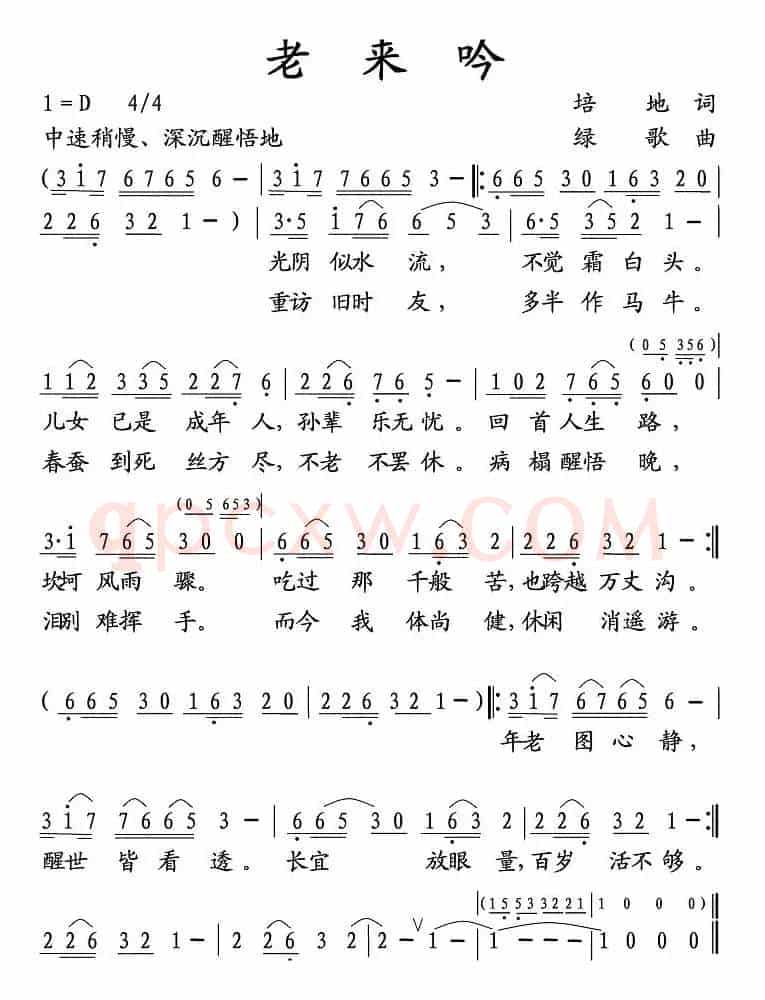 老来吟
1=D 4/4 培地词
中速稍慢、深沉醒悟地 绿歌曲
(3i7 6765 6－|3i7 7665 3－‖:665 30 163 20|
226 32 1－)|3·5 i76 6 5 3|6·5 352 1－|
光阴 似水 流， 不觉 霜白头。
重访 旧时 友， 多半 作马牛。
(0 5 356)
112 335 227 6|226 76 5－|102 765 600|
儿女 已是 成年 人，孙辈 乐无忧。回首人生 路，
春蚕 到死 丝方 尽，不老 不罢休。病榻醒悟 晚，
(0 5 653)
qpcxw.COM
3·i 765 300|665 30 163 2|226 32 1－:‖
坎坷 风雨 骤。 吃过 那 千般 苦，也跨越 万丈 沟。
泪别 难挥 手。 而今 我 体尚 健，休闲 消遥 游。
(665 30 163 20|226 32 1－)‖:3i7 6765 6－|
年老 图心 静，
3i7 7665 3－|665 30 163 2|226 32 1－:‖
醒世 皆看 透。长宜 放眼 量，百岁 活不够。
(15 53 3221|1 0 0 0)
226 32 1－|2 226 3 2－∨|1－1－|1000‖